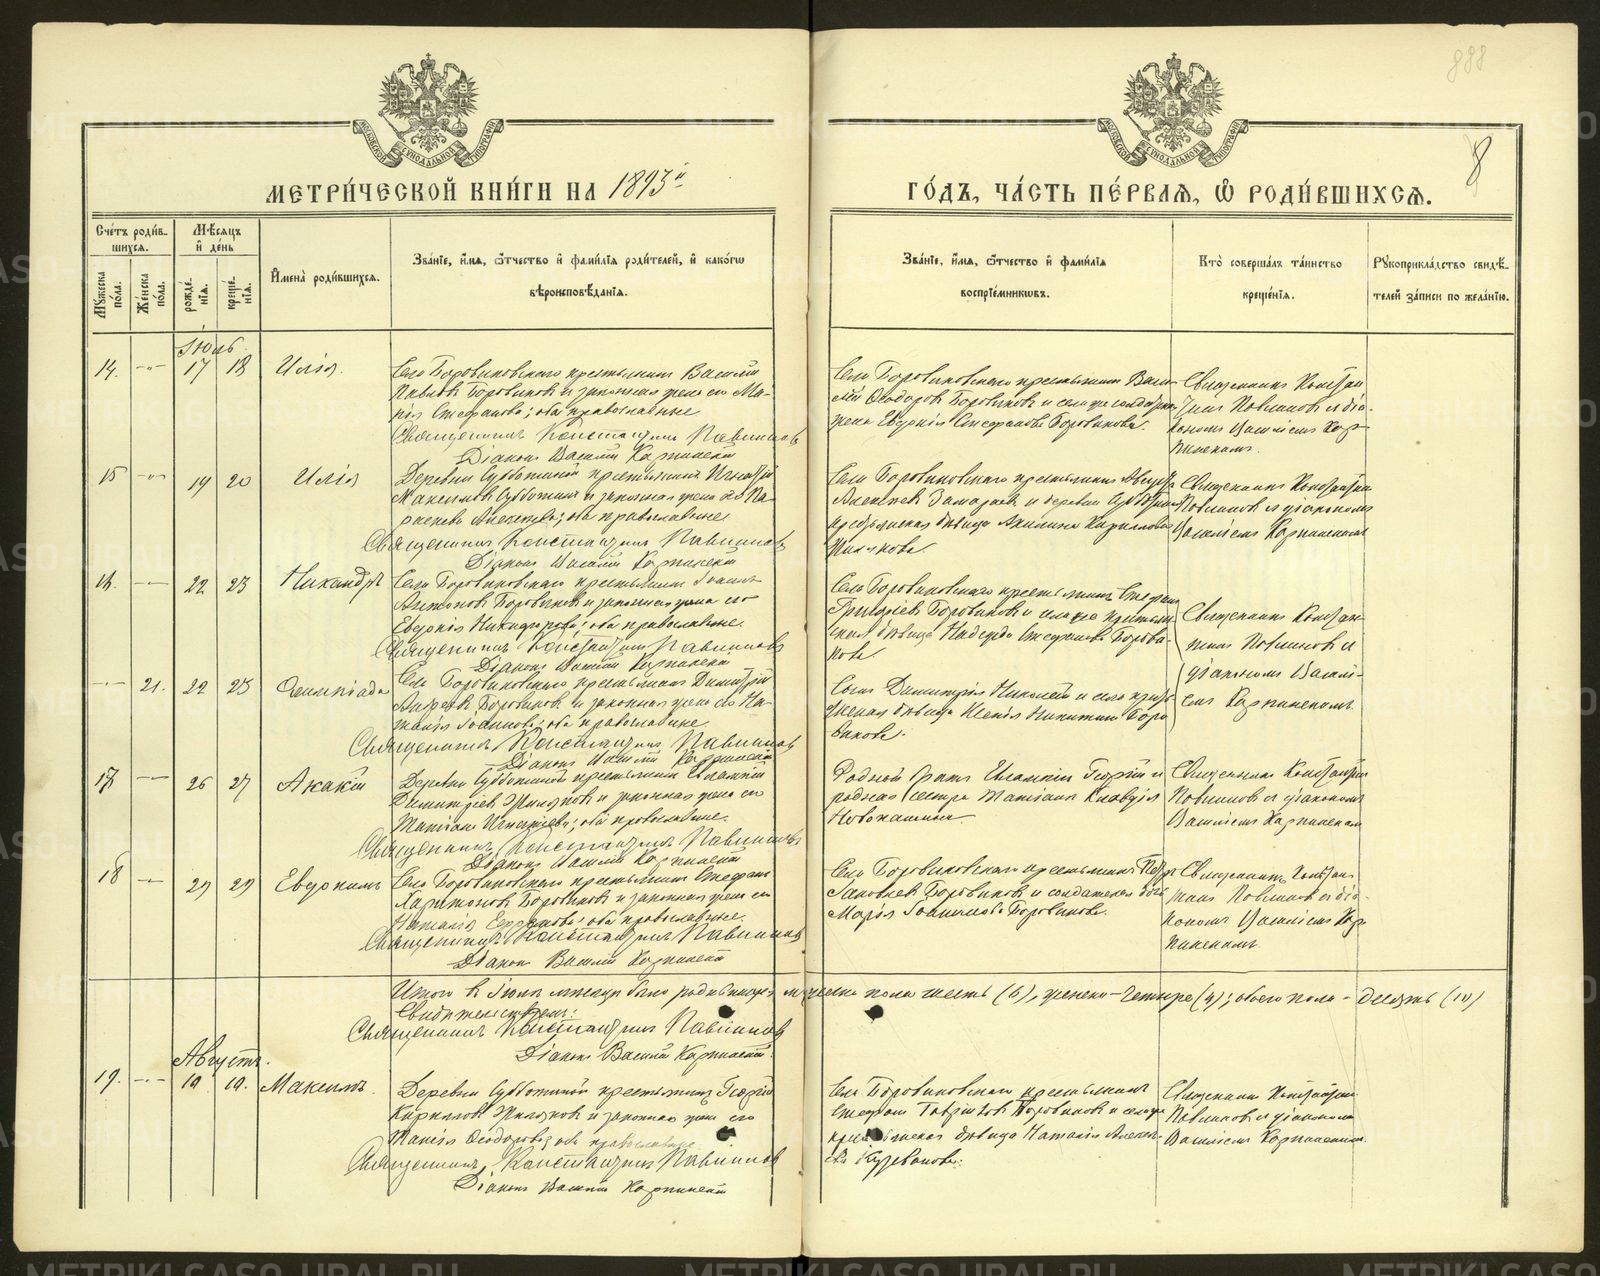 888
8
МОСКОВСКОЙ СѴНОДАЛЬНОЙ ТИПОГРАФІИ
МОСКОВСКОЙ СѴНОДАЛЬНОЙ ТИПОГРАФІИ
МЕТРИ́ЧЕСКОЙ КНИ́ГИ НА 1893й
ГО́ДЪ, ЧА́СТЬ ПЕ́РВАЯ, Ѡ РОДИ́ВШИХСЯ.
Сче́тъ роди́в-
шихся.
Мѣ́сяцъ
и҆ де́нь
Мꙋжеска по́ла.
Же́нска по́ла.
рожде́-нїѧ.
креще́-нїѧ.
И҆мена̀ роди́вшихся.
Зва́нїе, и҆́мѧ, ѻ҆́тчество и҆ фамилїѧ роди́телей, и҆ како́гѡ
вѣроисповѣ́данїѧ.
Зва́нїе, и҆́мѧ, ѻ҆́тчество и҆ фамилїѧ
воспрїе́мникѡвъ.
Кто̀ соверша́лъ та́инство
креще́нїѧ.
Рꙋкоприкла́дство свидѣ́-
телей за́писи по жела́нїю.
Іюль
14. -"- 17 18 Илія.
Села Боровиковскаго крестьянинъ Василій
Павловъ Боровиковъ и законная жена его Ма-
рія Стефанова; оба православные
Священникъ Константинъ Павлиновъ
Діаконъ Василій Карпинскій
Села Боровиковскаго крестьянинъ Васи-
лій Ѳеодоровъ Боровиковъ и села же солдатская
жена Евдокія Стефанова Боровикова.
Священникъ Констан-
тинъ Павлиновъ и діа-
кономъ Василіемъ Кар-
пинскимъ.
15 -"- 19 20 Илія
Деревни Субботиной крестьянинъ Игнатій
Максимовъ Субботинъ и законная жена его Па-
раскева Алексеева; оба православные
Священникъ Константинъ Павлиновъ
Діаконъ Василій Карпинскій
Села Боровиковскаго крестьянинъ
Алексеевъ и деревни Субботиной
крестьянская дѣвица Акилина Кириллова
Священникъ Константинъ
Павлиновъ и діакономъ
Василіемъ Карпинскимъ
16. -"- 22 23 Никандръ
Села Боровиковскаго крестьянинъ Іоаннъ
Антоновъ Боровиковъ и законная жена его
Евдокія Никифорова; оба православные.
Священникъ Константинъ Павлиновъ
Діаконъ Василій Карпинскій
Села Боровиковскаго крестьянинъ Стефанъ
Григорьевъ Боровиковъ и села же крестьян-
ская дѣвица Надежда Стефанова Борови-
кова.
Священникъ Констан-
тинъ Павлиновъ и
діакономъ Василі-
емъ Карпинскимъ.
-"- 21. 22 23 Олимпіада
Села Боровиковскаго крестьянинъ Димитрій
Андреевъ Боровиковъ и законная жена его На-
талія Іоаннова; оба православные.
Священникъ Константинъ Павлиновъ
Діаконъ Василій Карпинскій
Сынъ Димитрія Николай и села кресть-
янская дѣвица Ксенія Никитина Боро-
викова.
17 -"- 26 27 Акакій
Деревни Субботиной крестьянинъ Евлампій
Димитріевъ Жилоковъ и законная жена его
Татіана Игнатіева; оба православные.
Священникъ Константинъ Павлиновъ
Діаконъ Василій Карпинскій
Родной братъ Евлампія Георгій и
родная сестра Татіаны Клавдія
Священникъ Константинъ
Павлиновъ и діакономъ
Василіемъ Карпинскимъ
18 -"- 29 29 Евдокимъ
Села Боровиковскаго крестьянинъ Стефанъ
Харитоновъ Боровиковъ и законная жена его
Наталія Ефремова; оба православные.
Священникъ Константинъ Павлиновъ
Діаконъ Василій Карпинскій
Села Боровиковскаго крестьянинъ Петръ
Іаковлевъ Боровиковъ и солдатская дочь
Марія Іоаннова Боровикова.
Священникъ Констан-
тинъ Павлиновъ и діа-
кономъ Василіемъ Кар-
пинскимъ
Итого въ Іюлѣ мѣсяцѣ было родившихся мужеска пола шесть (6), женска - четыре (4); обоего пола - десять (10)
Свидѣтельствуемъ:
Священникъ Константинъ Павлиновъ
Діаконъ Василій Карпинскій.
Августъ.
19. -"- 10 10. Максимъ.
Деревни Субботиной крестьянинъ Георгій
Кирилловъ Жилоковъ и законная жена его
Таисія Ѳеодорова; оба православные.
Священникъ Константинъ Павлиновъ
Діаконъ Василій Карпинскій
Села Боровиковскаго крестьянинъ
Стефанъ Гавріиловъ Боровиковъ и села же
крестьянская дѣвица Наталія Алексѣ-
Священникъ Константинъ
Павлиновъ и діакономъ
Василіемъ Карпинскимъ
METRIKI.CASO-URAL.RU